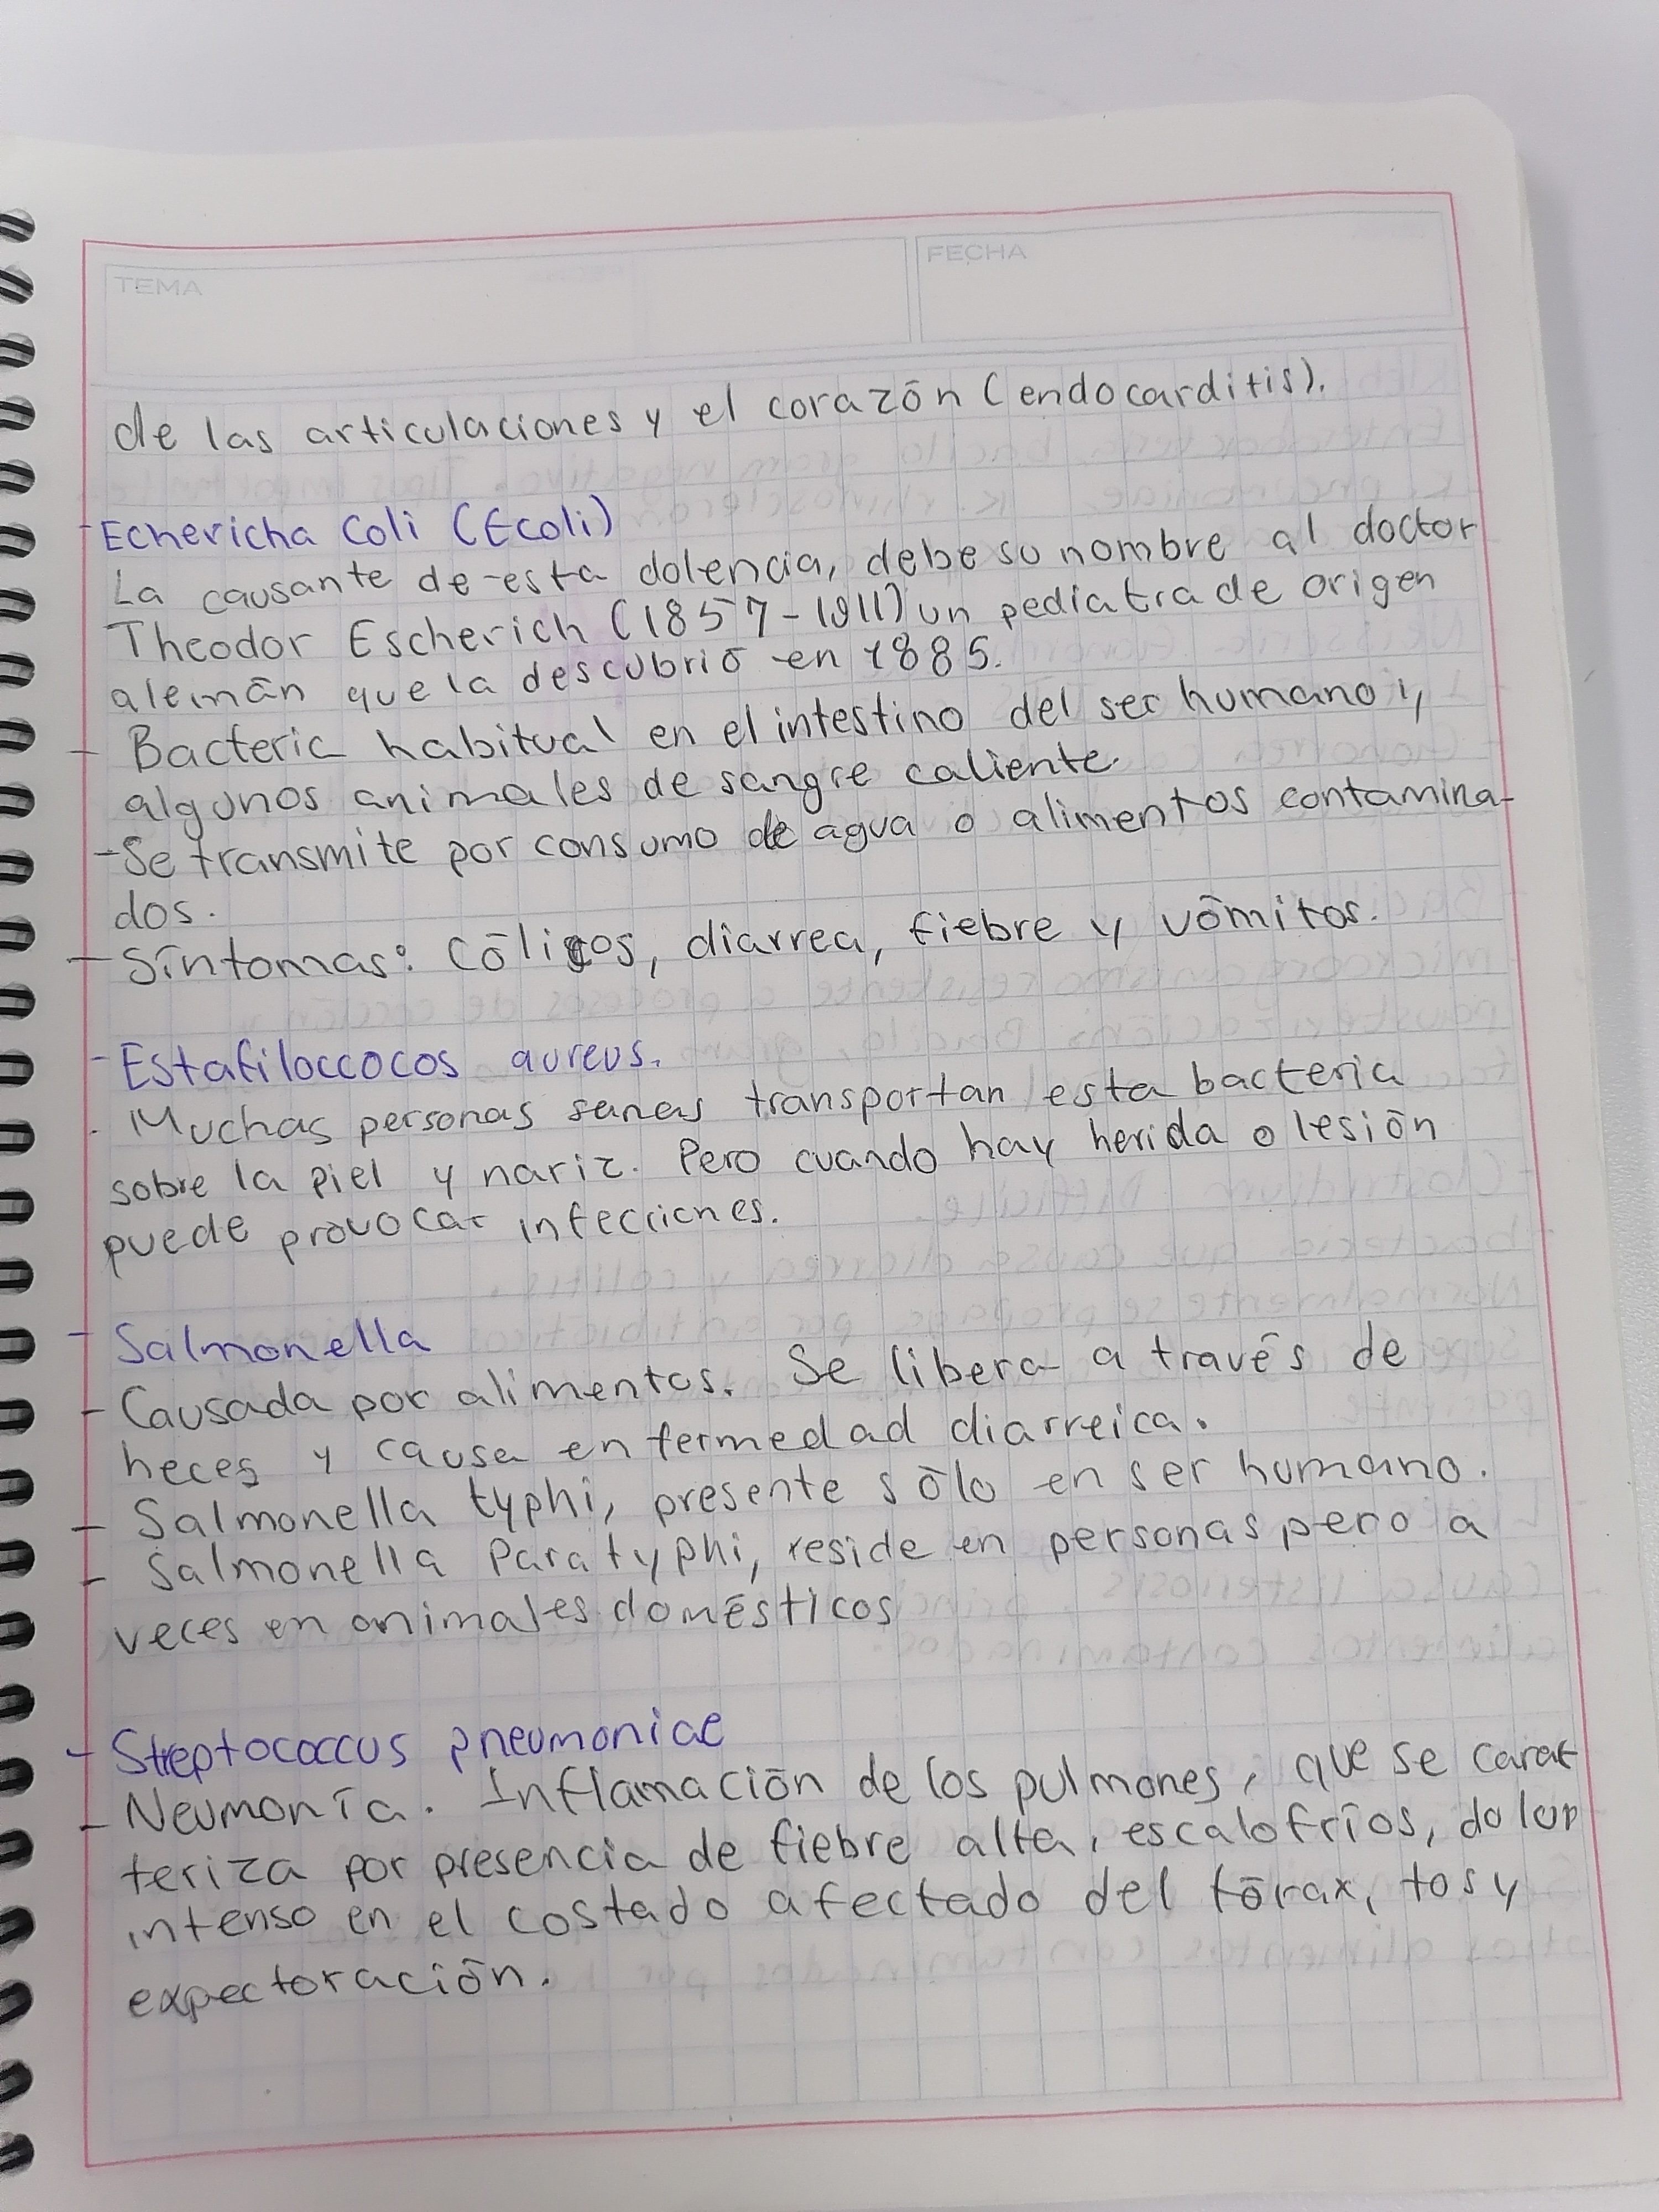 TEMA
FECHA
de las articulaciones y el corazón (endocarditis).
- Echericha Coli (Ecoli)
La causante de esta dolencia, debe su nombre al doctor
Theodor Escherich (1857-1911) un pediatra de origen
alemán que la descubrió en 1885.
- Bacteria habitual en el intestino del ser humano y
algunos animales de sangre caliente.
- Se transmite por consumo de agua o alimentos contamina-
dos.
- Síntomas: Cólicos, diarrea, fiebre y vómitos.
- Estafiloccocos aureus.
. Muchas personas sanas transportan esta bacteria
sobre la piel y nariz. Pero cuando hay herida o lesión
puede provocar infecciones.
- Salmonella
- Causada por alimentos. Se libera a través de
heces y causa enfermedad diarreica.
- Salmonella typhi, presente sólo en ser humano.
- Salmonella Paratyphi, reside en personas pero a
veces en animales domésticos
- Streptococcus pneumoniae
- Neumonía. Inflamación de los pulmones, que se carac
teriza por presencia de fiebre alta, escalofríos, dolor
intenso en el costado afectado del tórax, tos y
expectoración.